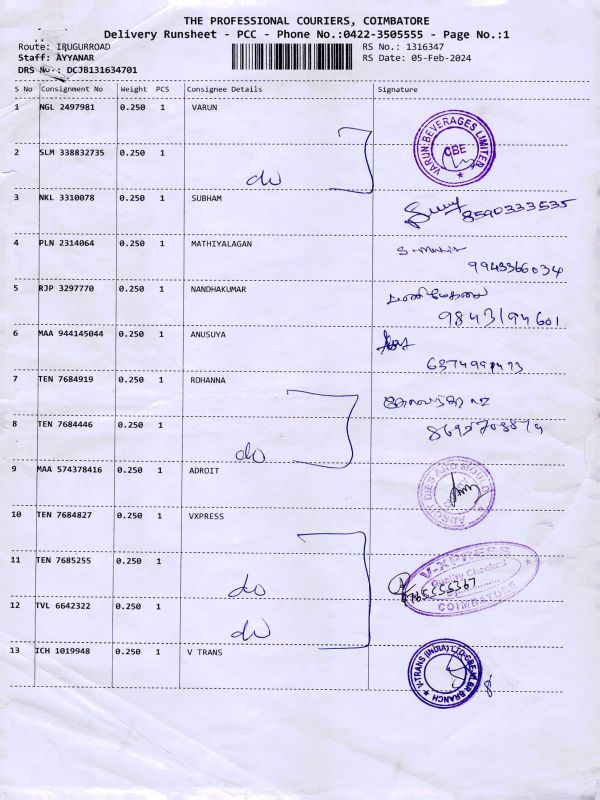 THE PROFESSIONAL COURIERS, COIMBATORE
Delivery Runsheet - PCC - Phone No.:0422-3505555 - Page No.:1
Route: IRUGURROAD
RS No.: 1316347
Staff: AYYANAR
RS Date: 05-Feb-2024
DRS No.: DCJB131634701
S No Consignment No Weight PCS Consignee Details Signature
1 NGL 2497981 0.250 1 VARUN
VARUN BEVERAGES LIMITED
CBE
2 SLM 338832735 0.250 1
do
3 NKL 3310078 0.250 1 SUBHAM
8590333535
4 PLN 2314064 0.250 1 MATHIYALAGAN
9943366034
5 RJP 3297770 0.250 1 NANDHAKUMAR
9843194601
6 MAA 944145044 0.250 1 ANUSUYA
7 TEN 7684919 0.250 1 ROHANNA
8 TEN 7684446 0.250 1
do
9 MAA 574378416 0.250 1 ADROIT
DIES AND MOULD
10 TEN 7684827 0.250 1 VXPRESS
V-XPRESS
COIMBATORE
11 TEN 7685255 0.250 1
do
12 TVL 6642322 0.250 1
do
13 ICH 1019948 0.250 1 V TRANS
V-TRANS (INDIA) LTD
BRANCH